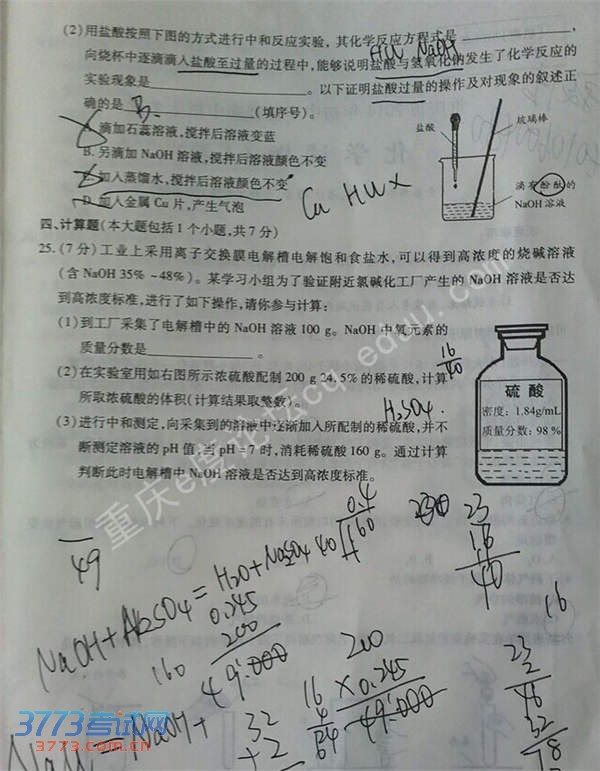 (2)用盐酸按照下图的方式进行中和反应实验，其化学反应方程式是____________，
HCl NaOH
向烧杯中逐滴滴入盐酸至过量的过程中，能够说明盐酸与氢氧化钠发生了化学反应的
实验现象是____________。以下证明盐酸过量的操作及对现象的叙述正
确的是 B. (填序号)。
A.滴加石蕊溶液，搅拌后溶液变蓝
B.另滴加NaOH溶液，搅拌后溶液颜色不变
C.加入蒸馏水，搅拌后溶液颜色不变
D.加入金属Cu片，产生气泡
盐酸
玻璃棒
滴有酚酞的
NaOH溶液
四、计算题(本大题包括1个小题，共7分)
25.(7分)工业上采用离子交换膜电解槽电解饱和食盐水，可以得到高浓度的烧碱溶液
(含NaOH 35%~48%)。某学习小组为了验证附近氯碱化工厂产生的NaOH溶液是否达
到高浓度标准，进行了如下操作，请你参与计算：
(1)到工厂采集了电解槽中的NaOH溶液100 g。NaOH中氧元素的
质量分数是____________。
16
40
(2)在实验室用如右图所示浓硫酸配制200 g 24.5%的稀硫酸，计算
所取浓硫酸的体积(计算结果取整数)。
H2SO4.
(3)进行中和测定，向采集到的溶液中逐渐加入所配制的稀硫酸，并不
断测定溶液的pH值，当pH=7时，消耗稀硫酸160 g。通过计算
判断此时电解槽中NaOH溶液是否达到高浓度标准。
硫酸
密度：1.84g/mL
质量分数：98%
0.4
40
160
23
16
40
49
H2O+Na2SO4
0.245
200
49.000
160
200
×0.245
49.000
16
4
64
32
+2
16
23
2
46
32
78
重庆e度论坛cq.eduu.com
3773考试网
3773.com.cn